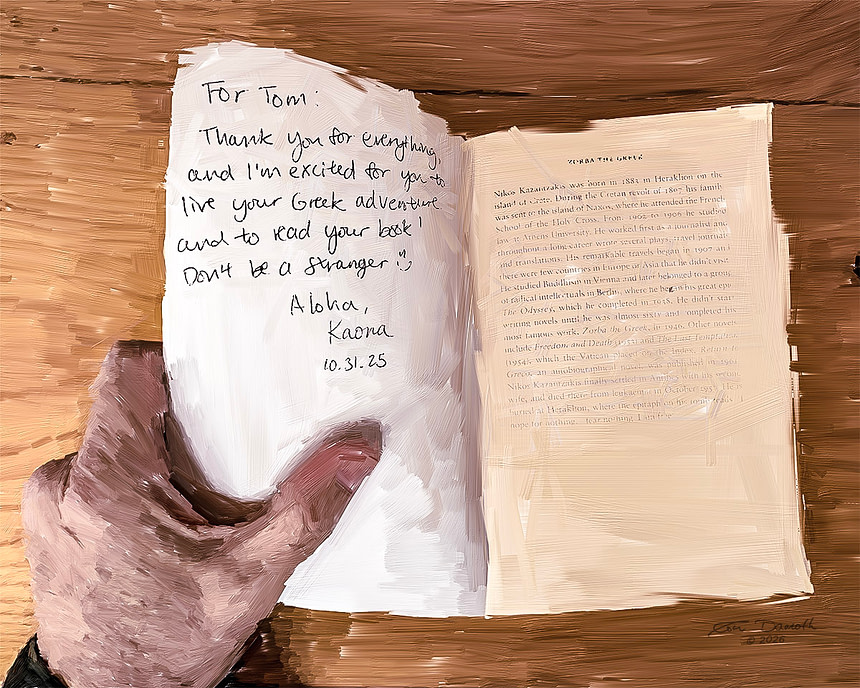 For Tom:
Thank you for everything,
and I'm excited for you to
live your Greek adventure
and to read your book!
Don't be a stranger :)
Aloha,
Kaona
10.31.25
ZORBA THE GREEK
Nikos Kazantzakis was born in 1883 in Herakleion on the
island of Crete. During the Cretan revolt of 1897 his family
was sent to the island of Naxos, where he attended the French
School of the Holy Cross. From 1902 to 1906 he studied
law at Athens University. He worked first as a journalist and
throughout a long career wrote several plays, travel journals
and translations. His remarkable travels began in 1907 and
there were few countries in Europe or Asia that he didn't visit.
He studied Buddhism in Vienna and later belonged to a group
of radical intellectuals in Berlin, where he began his great epic
The Odyssey, which he completed in 1938. He didn't start
writing novels until he was almost sixty and completed his
most famous work, Zorba the Greek, in 1946. Other novels
include Freedom and Death (1953) and The Last Temptation
(1954), which the Vatican placed on the Index. Return to
Greco, an autobiographical was published in 1961.
Nikos Kazantzakis finally settled in with his second
wife, and died there from leukaemia in October 1957. He is
buried at Herakleion, where the epitaph on his tomb reads: I
hope for nothing. I fear nothing. I am free.
© 2026